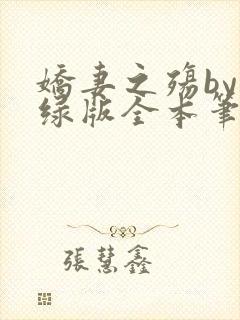 嬌妻之殤by
绿版全本筆
張慧鑫